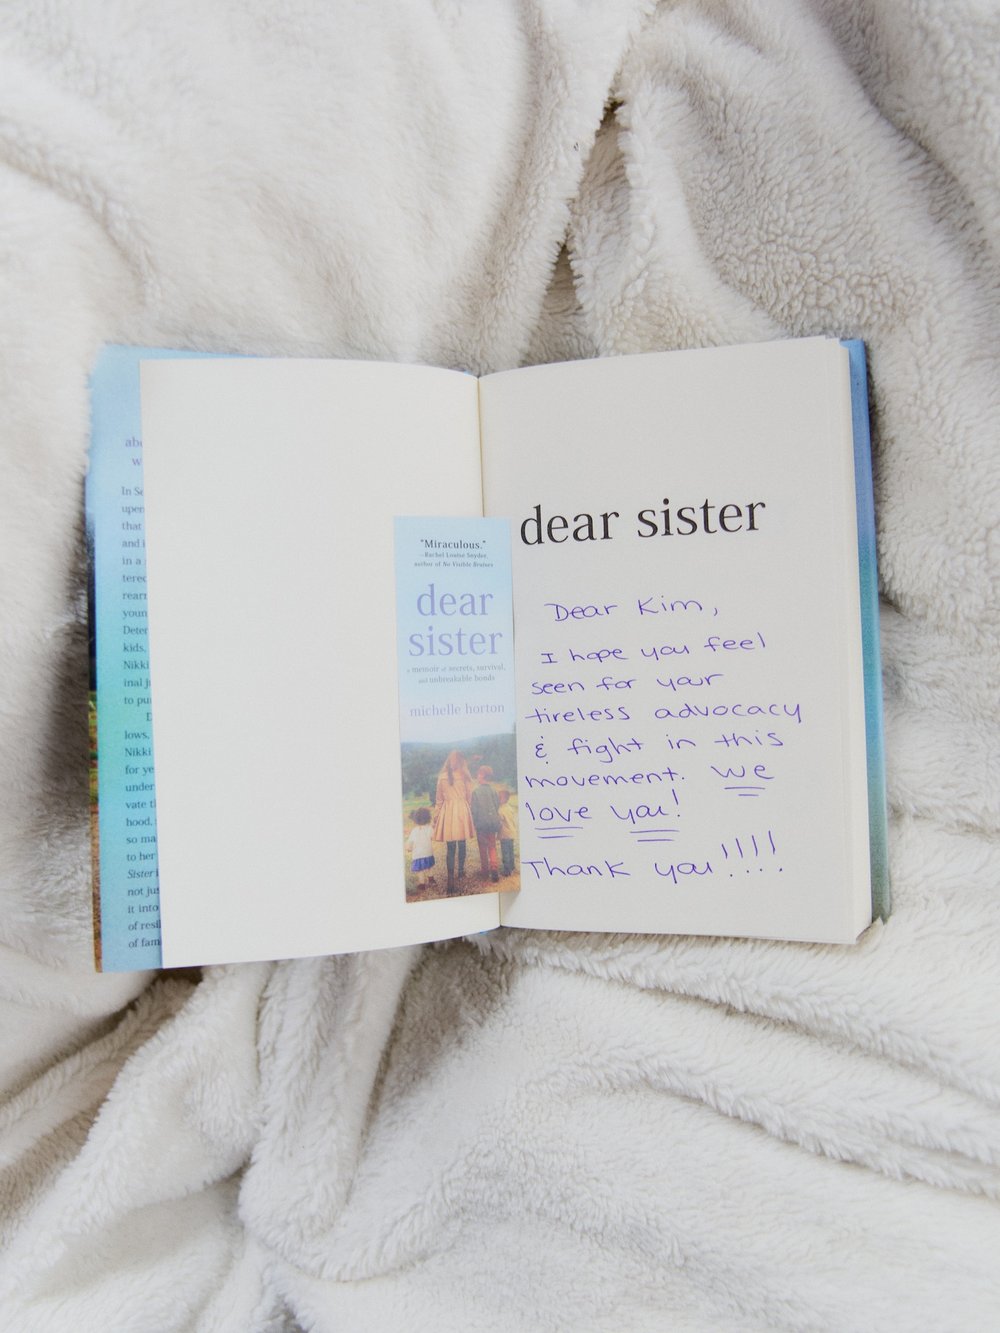 ab
w
In Se
upen
that
and i
in a
tered
rearr
youn
Deter
kids.
Nikki
inal j
to pu
D
lows,
Nikki
for ye
under
vate t
hood.
so ma
to her
Sister i
not jus
it into
of resil
of fam
"Miraculous."
—Rachel Louise Snyder,
author of No Visible Bruises
dear
sister
a memoir of secrets, survival,
and unbreakable bonds
michelle horton
dear sister
Dear Kim,
I hope you feel
seen for your
tireless advocacy
& fight in this
movement. We
love you!
Thank you!!!!